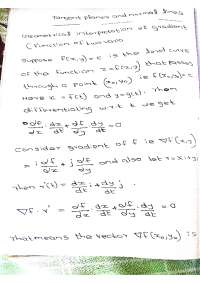 Tangent planes and normal lines
Geometrical interpretation of gradient
(function of two vars
Suppose f(x,y)=c is the level curve
of the function z=f(x,y) that passes
through a point (x₀,y₀) ie f(x₀,y₀)=c
Here x=f(t) and y=g(t). Then
differentiating w.r.t t we get
∂f/∂x · dx/dt + ∂f/∂y · dy/dt = 0
Consider gradient of f ie ∇f(x,y)
= i ∂f/∂x + j ∂f/∂y and also let r=xi+yj
Then r'(t) = dx/dt i + dy/dt j
∇f · r' = ∂f/∂x · dx/dt + ∂f/∂y · dy/dt = 0
That means the vector ∇f(x₀,y₀) is